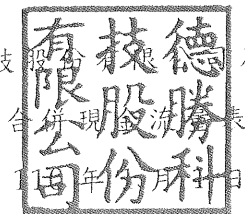 德勝科
技股份
有限公司
技股份有限
合併現金流量表
年 月 日